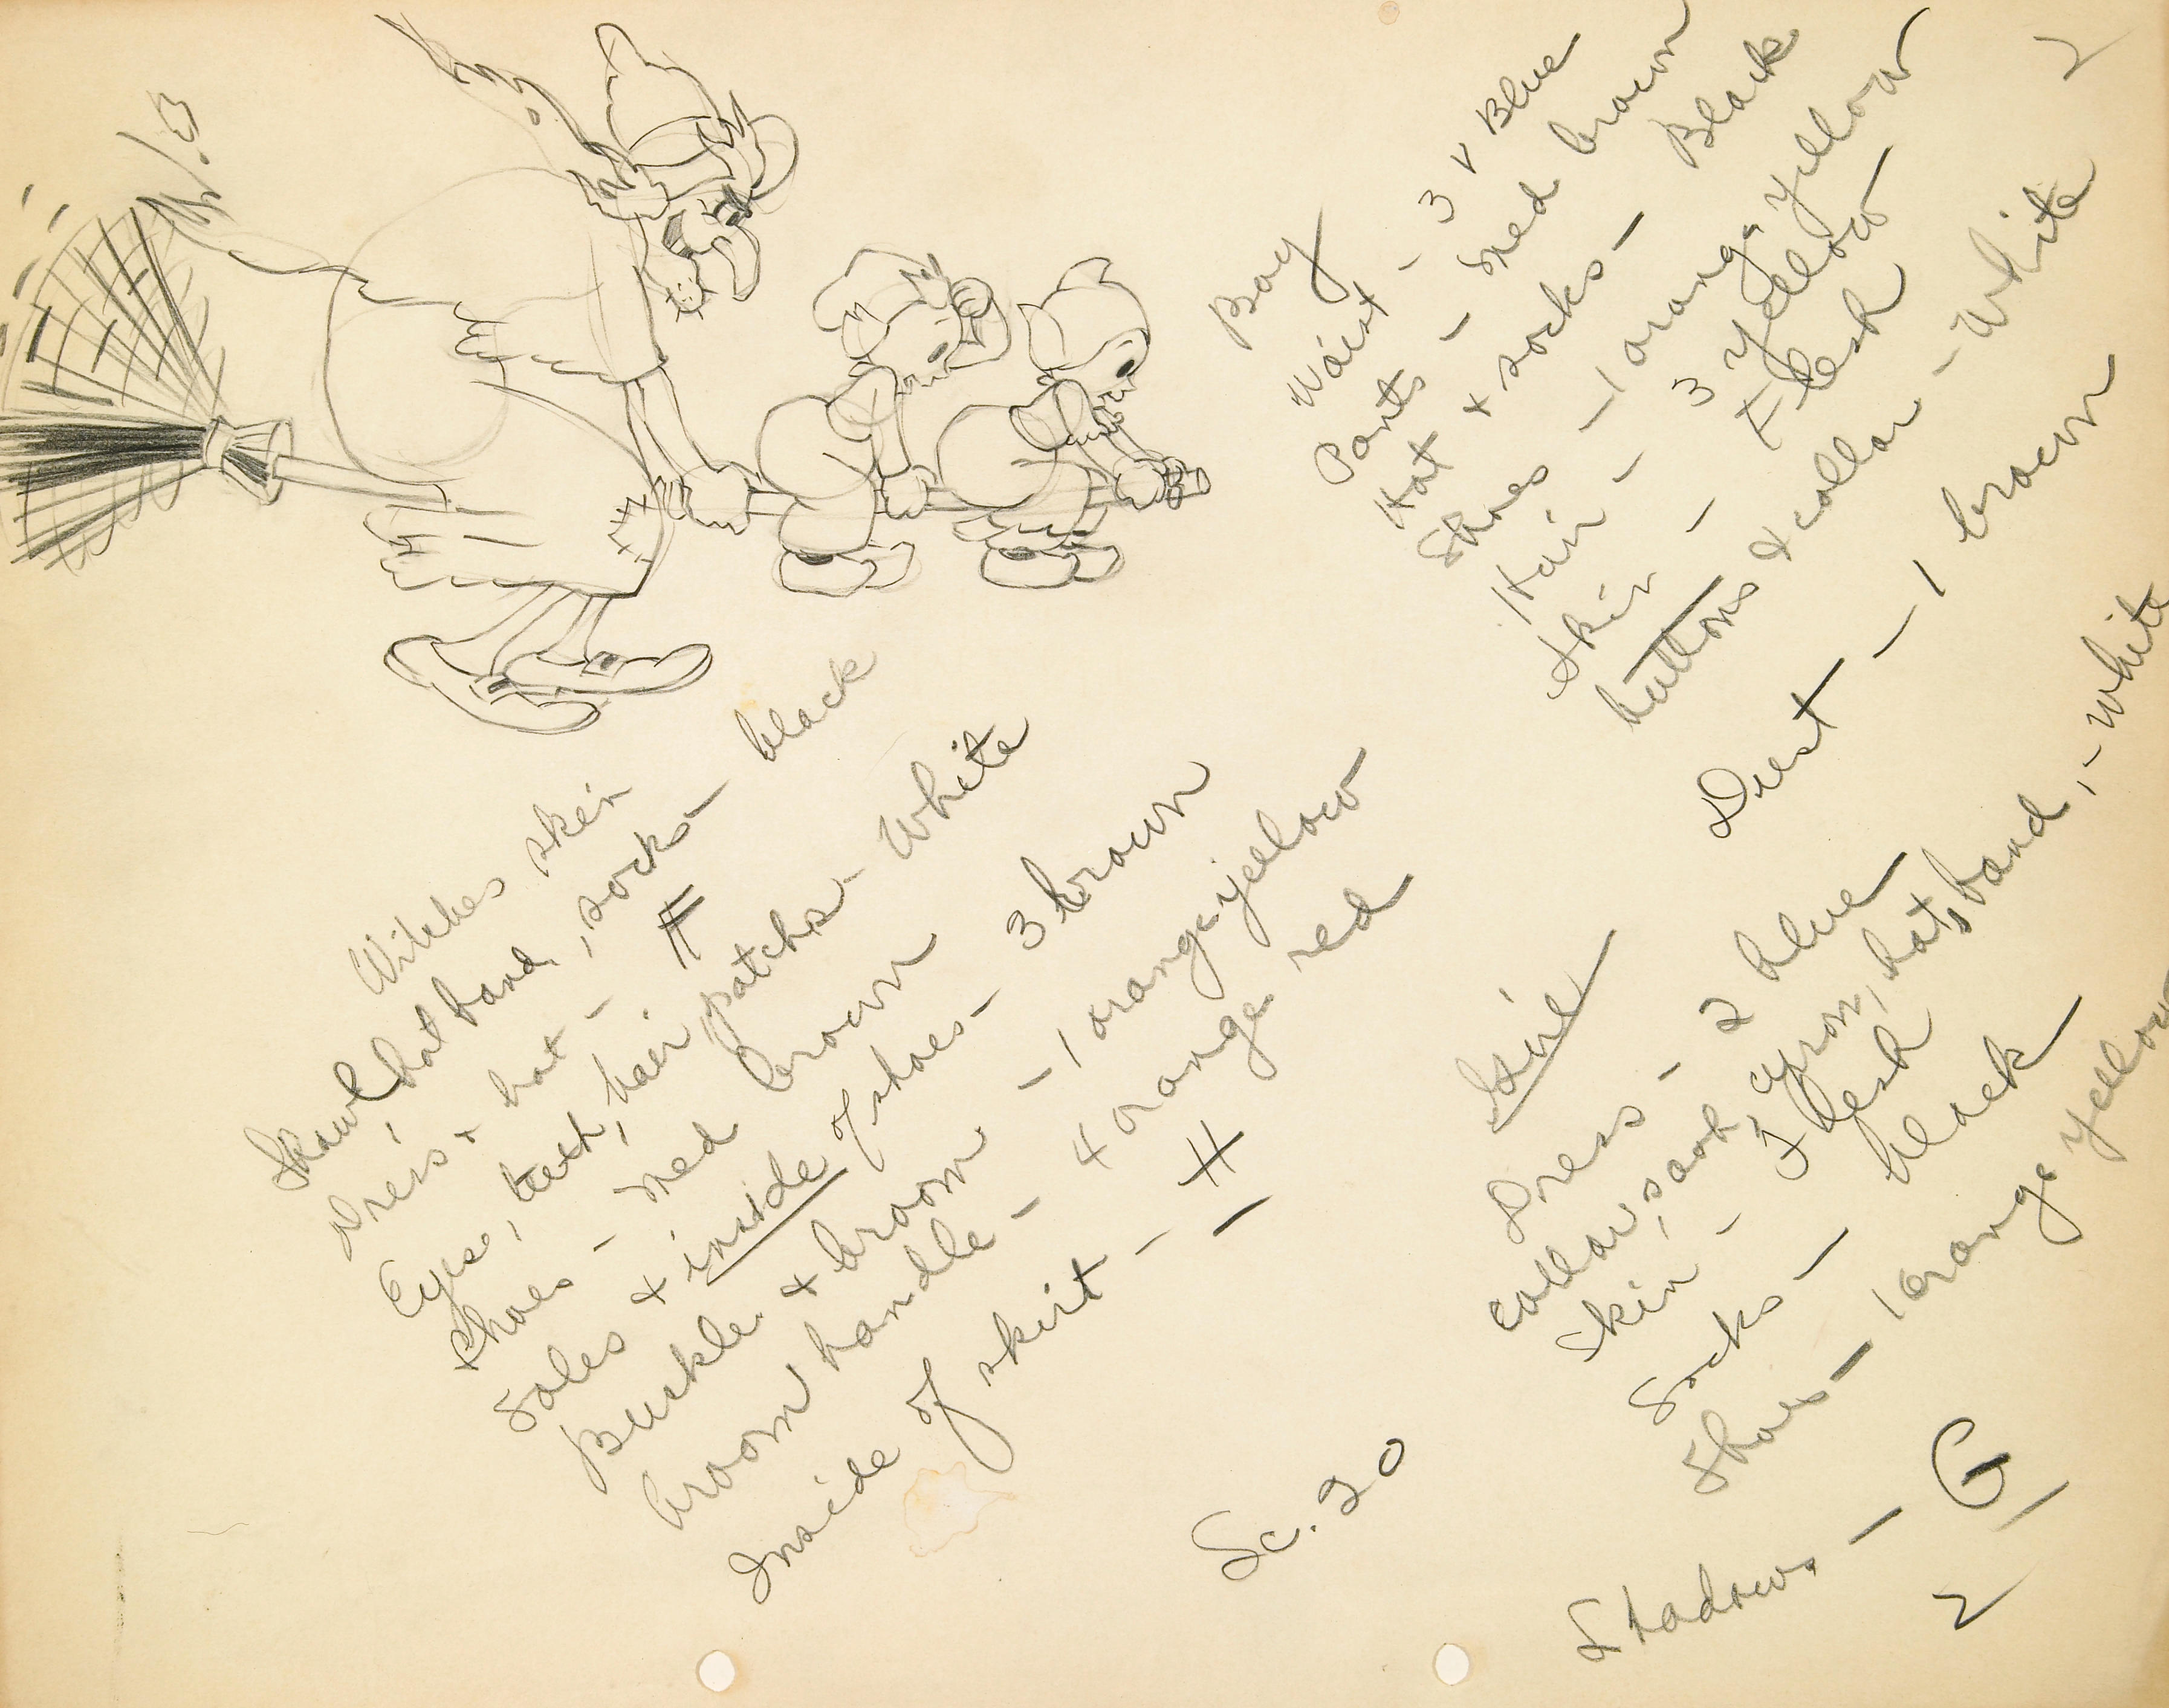 Boy
Waist - 3 V Blue
Pants - red brown
Hat + socks - Black
Shoes - 1 orange yellow
Hair - 3 yellow
Skin - Flesh
buttons & collar - White
Dust - 1 brown
Witches skin
Shawl, hat band, socks - black
Dress + hat - H
Eyes, teeth, hair patches - White
Shoes - red brown
Soles + inside of shoes - 3 brown
Buckle + broom - 1 orange yellow
broom handle - 4 orange red
Inside of skirt - H
Sc. 20
Girl
Dress - 2 blue
collar, sash, apron, hat & band, - white
Skin - Flesh
Socks - black
Shoes - 1 orange yellow
Shadows - G